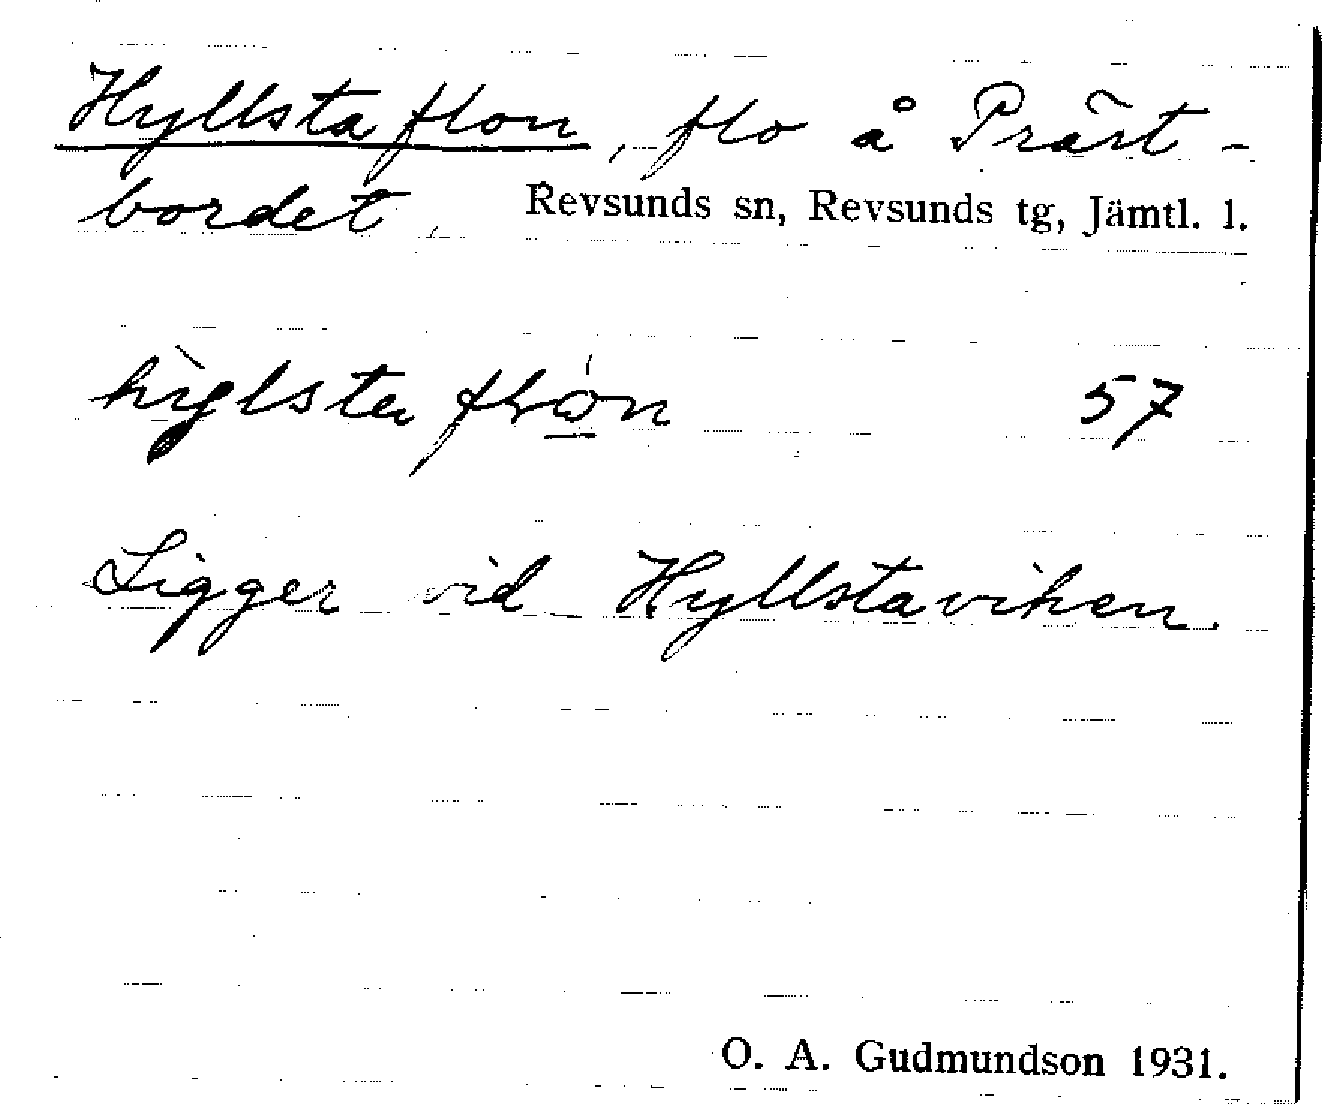 Hyllstaflon, flo å Präst-
bordet, Revsunds sn, Revsunds tg, Jämtl. l.
57
Ligger vid Hyllstaviken.
O. A. Gudmundson 1931.